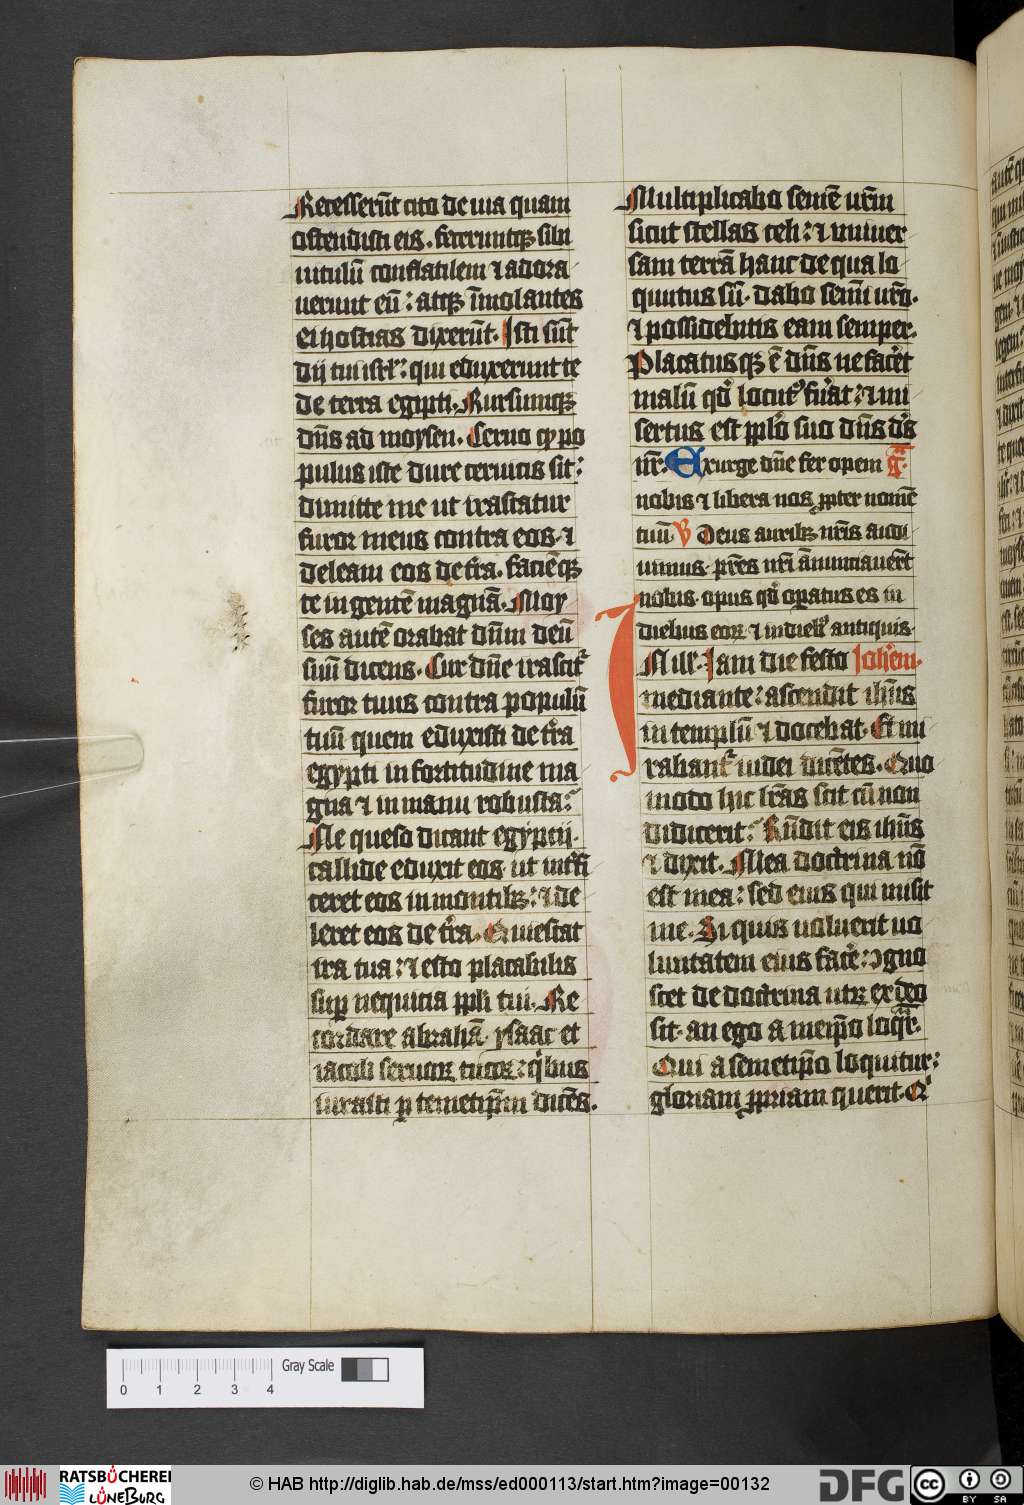 Recesserūt cito de uia quam
ostendisti eis. feceruntqꝫ sibi
uitulū conflatilem ⁊ adora
uerunt eū: atqꝫ īmolantes
ei hostias dixerūt. Isti sūt
dij tui isrl̄: qui eduxerunt te
de terra egipti. Rursumqꝫ
dn̄s ad moysen. Cerno qp̄ po
pulus iste dure ceruicis sit:
dimitte me ut irascatur
furor meus contra eos. ⁊
deleam eos de tr̄a. faciēqꝫ
te in gentē magnā. Moy
ses autē orabat dn̄m deū
suū dicens. Cur dn̄e irascit᷑
furor tuus contra populū
tuū quem eduxisti de tr̄a
egypti in fortitudine ma
gna ⁊ in manu robusta:
Ne queso dicant egyptij.
callide eduxit eos. ut int̄fi
ceret eos in montibꝫ: ⁊ de
leret eos de tr̄a. Quiescat
ira tua: ⁊ esto placabilis
sup̄ nequicia pp̄li tui. Re
cordare abrahā. ysaac et
iacob seruoꝝ tuoꝝ: qͥbus
iurasti ꝑ temetip̄m dicēs.
Multiplicabo semē ur̄m
sicut stellas celi: ⁊ uniuer
sam terrā hanc de qua lo
quutus sū. dabo semī ur̄o.
⁊ possidebitis eam semper.
Placatusqꝫ ē dn̄s ne fac̄et
malū qd̄ locutꝰ fūat: ⁊ mi
sertus est pp̄lo suo dn̄s dꝰs
nr̄. Exurge dn̄e fer opem G̅.
nobis ⁊ libera nos ꝓpter nomē
tuū. V Deus auribꝫ nr̄is audi
uimus. pr̄es nr̄i ānunciauer̄t
nobis. opus qd̄ oꝑatus es in
diebus eoꝝ ⁊ in diebꝫ antiquis.
N ill̄. Iam die festo Ioh̄em.
mediante: ascendit ih̄us
in templū ⁊ docebat. Et mi
rabant᷑ iudei dicētes. Quo
modo hic lr̄as scit cū non
didicerit: Rn̄dit eis ih̄us
⁊ dixit. Mea doctrina nō
est mea: sed eius qui misit
me. Si quis uoluerit uo
luntatem eius fac̄e: ꝯgno
scet de doctrina utꝝ ex deo
sit. an ego a meip̄o loqͣr.
Qui a semetip̄o loquitur:
gloriam ꝓpriam querit. Qͥ
Gray Scale
0 1 2 3 4
RATSBÜCHEREI
LÜNEBURG
© HAB http://diglib.hab.de/mss/ed000113/start.htm?image=00132
DFG
cc BY SA